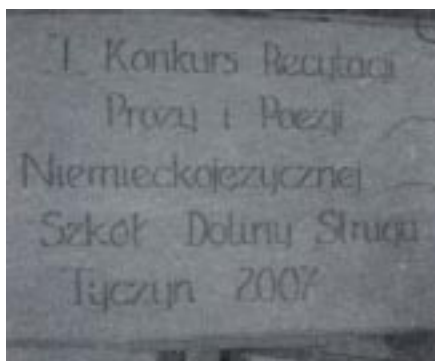 I Konkurs Recytacji
Prozy i Poezji
Niemieckojęzycznej
Szkół Doliny Strugu
Tyczyn 2007